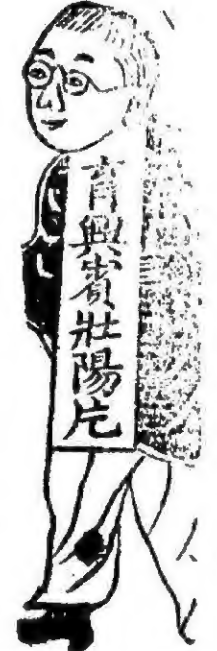 育興賓壯陽片